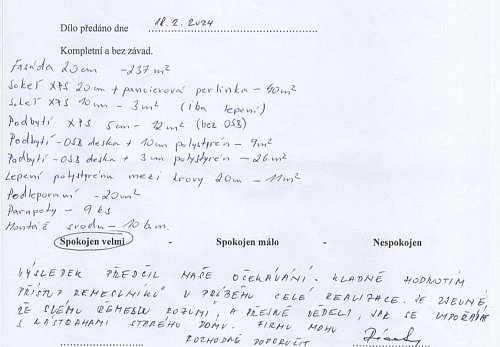 Dílo předáno dne 18. 2. 2024
Kompletní a bez závad.
Fasáda 20cm - 237 m²
Sokel XPS 20cm + pancierová perlinka - 40m²
Sokel XPS 10cm - 3m² (iba lepení)
Podbytí XPS 5cm - 12m² (bez OSB)
Podbytí - OSB deska + 10cm polystyrén - 9m²
Podbytí - OSB deska + 3cm polystyrén - 26m²
Lepení polystyrénu mezi krovy 20cm - 11m²
Podlepovaní - 20m²
Parapety - 9 ks
Montáž svodu - 10 b.m.
Spokojen velmi - Spokojen málo - Nespokojen
VÝSLEDEK PŘEDČIL NAŠE OČEKÁVÁNÍ. KLADNĚ HODNOTÍM
PŘÍSTUP ŘEMESLNÍKŮ V PRŮBĚHU CELÉ REALIZACE. JE ZJEVNÉ,
ŽE SVÉMU ŘEMESLU ROZUMÍ, A PŘESNĚ VĚDĚLI, JAK SE VYPOŘÁDAT
S NÁSTRAHAMI STARÉHO DOMU. FIRMU MOHU
ROZHODNĚ DOPORUČIT